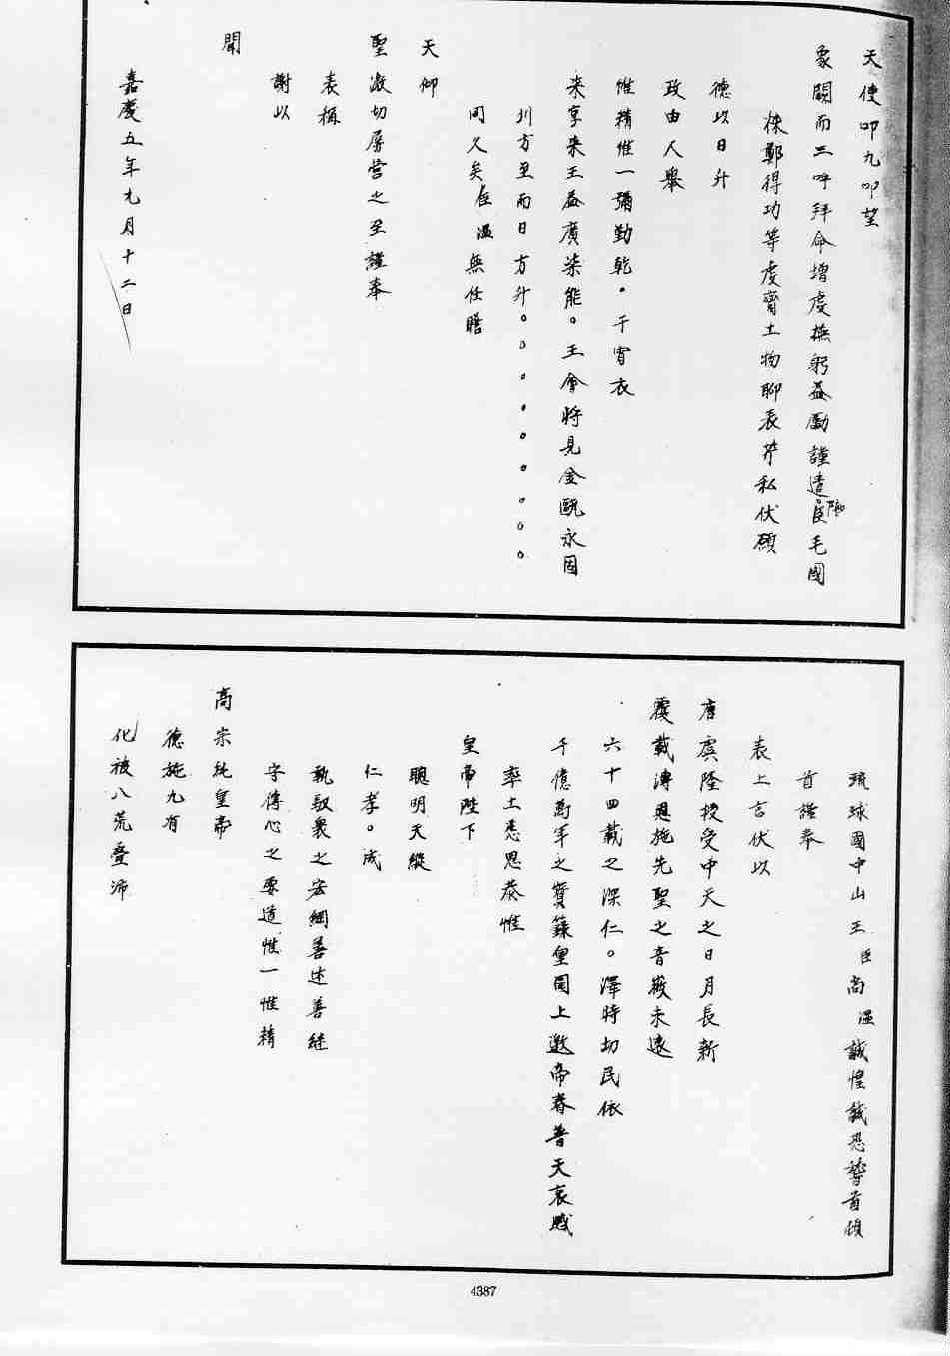 天使叩九叩望
象闕而三呼拜命增虔撫躬益勵謹遣陪臣毛國
棟鄭得功等虔賫土物聊表芹私伏願
德以日升
政由人舉
惟精惟一彌勤乾。干宵衣
來享來王益廣柒能。王會將見金甌永固
川方至而日方升。。。。。。。。。
同久矣臣温無任瞻
天仰
聖激切屏營之至謹奉
表稱
謝以
聞
嘉慶五年九月十二日
琉球國中山王臣尚温誠惶誠恐稽首頓
首謹奉
表上言伏以
唐虞隆授受中天之日月長新
覆載溥恩施先聖之音徽未遠
六十四載之深仁。澤時切民依
千億萬年之寶籙皇圖上邀帝眷普天哀
率土悉思恭惟
皇帝陛下
聰明天縱
仁孝。成
執馭衆之宏綱善述善繼
守傳心之要道惟一惟精
高宗純皇帝
德施九有
化被八荒疊沛
4387